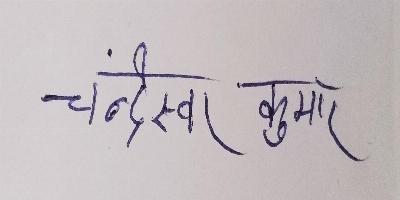 चंन्द्रीस्वार कुमार